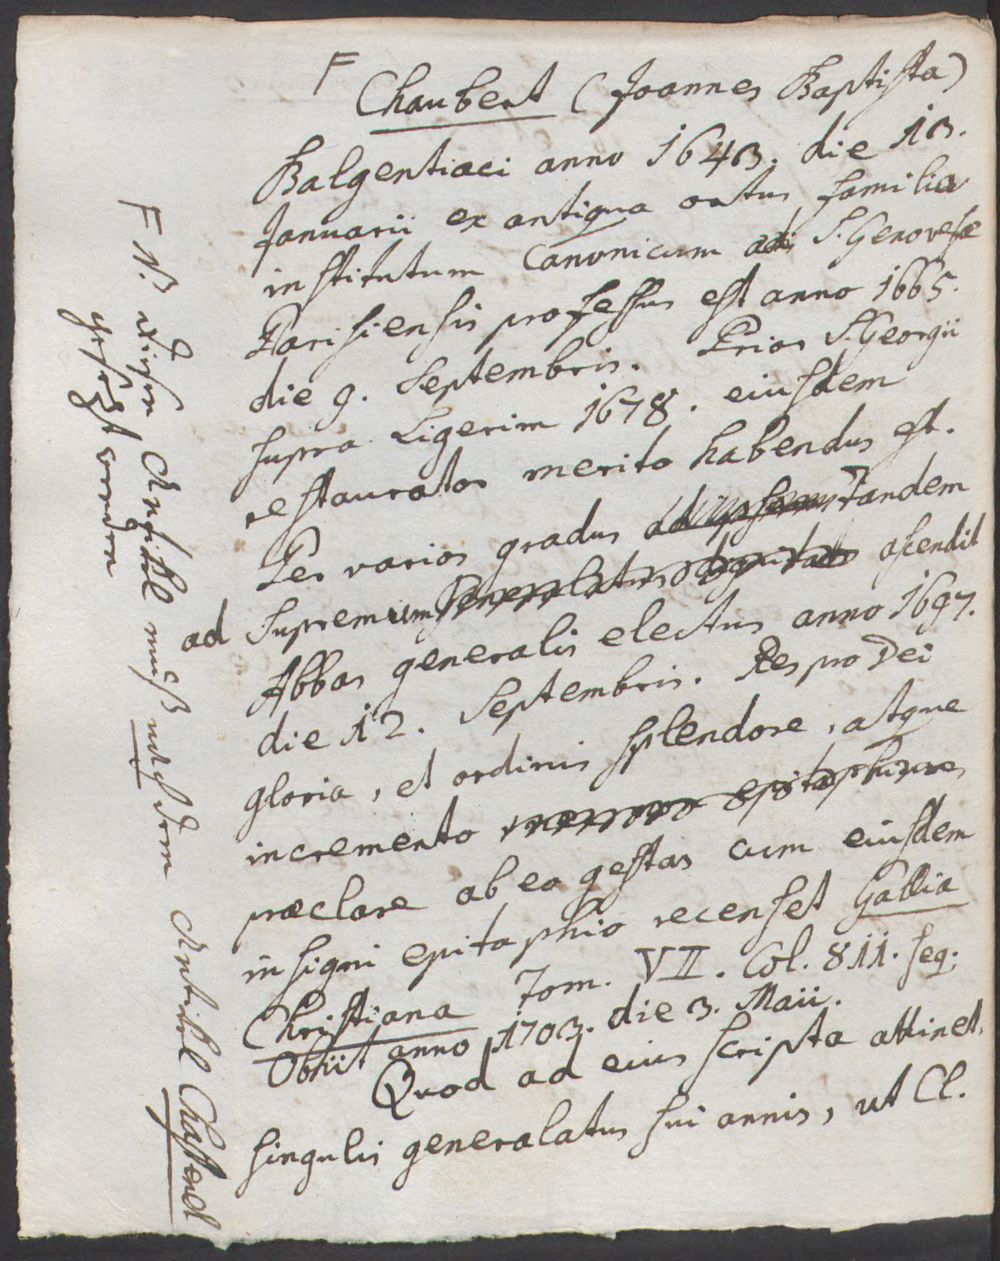 F
Chaubert (Joannes Baptista)
Balgentiaci anno 1643. die 13.
Januarii ex antiqua ortus familia
institutum Canonicum ad S. Genovefae
Parisiensis professus est anno 1665.
die 9. Septembris. Prior S. Georgii
supra Ligerim 1678. eiusdem
restaurator merito habendus est.
Per varios gradus tandem
ad supremum ascendit
Abbas generalis electus anno 1697.
die 12. Septembris. Res pro Dei
gloria, et ordinis splendore, atque
incremento
praeclare ab eo gestas cum eiusdem
insigni epitaphio recenset Gallia
Christiana Tom. VII. Col. 811. seq.
Obiit anno 1703. die 3. Maii.
Quod ad eius scripta attinet,
singulis generalatus sui annis, ut Cl.
F NB. dieser Artikel muß nach dem Artikel Chastenel
gesezt werden